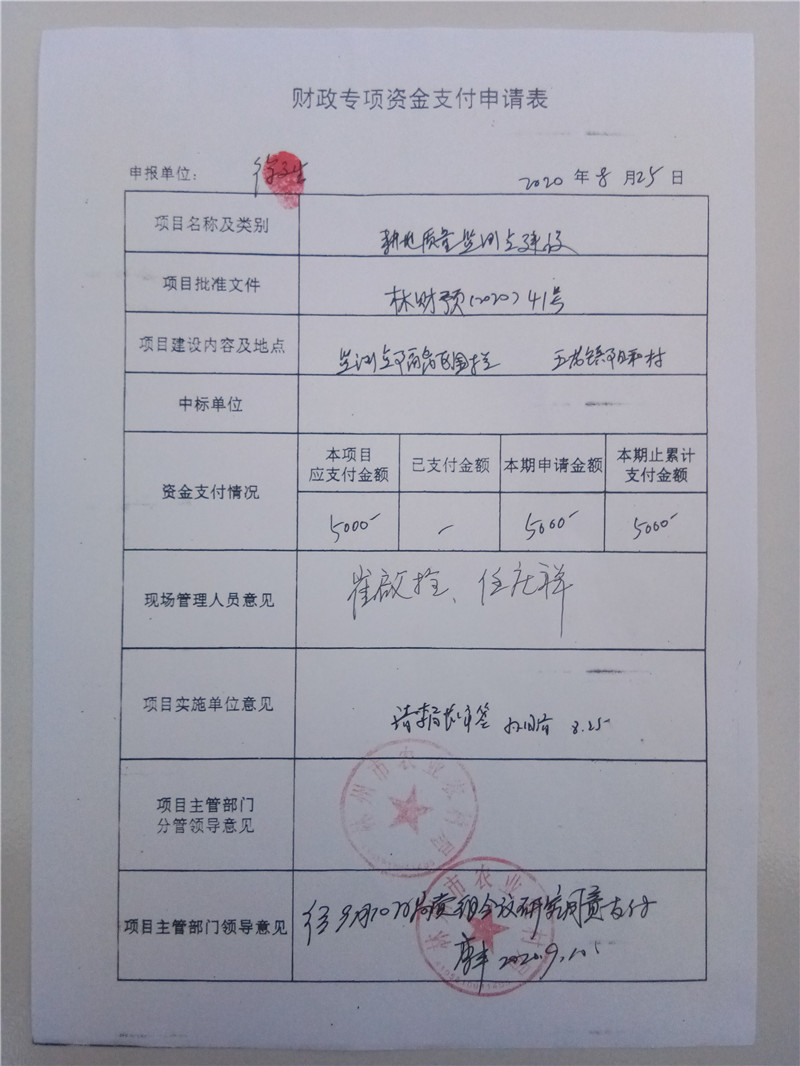 财政专项资金支付申请表
申报单位：
2020 年 8 月 25 日
项目名称及类别 耕地质量监测点建设
项目批准文件 林财预(2020)41号
项目建设内容及地点 监测点 五龙镇阳和村
中标单位
资金支付情况
本项目应支付金额 已支付金额 本期申请金额 本期止累计支付金额
5000- - 5000- 5000-
现场管理人员意见 崔啟拴、任庆祥
项目实施单位意见 请李局长审签 8.25
项目主管部门分管领导意见
林州市农业农村局
项目主管部门领导意见 经9月10日局党组会议研究同意支付
2020.9.10.